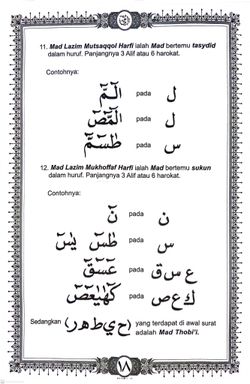 11. Mad Lazim Mutsaqqol Harfi ialah Mad bertemu tasydid
dalam huruf. Panjangnya 3 Alif atau 6 harokat.
Contohnya:
ل pada الٓمّٓ
ل pada الٓمّٓصٓ
س pada طسٓمّٓ
12. Mad Lazim Mukhoffaf Harfi ialah Mad bertemu sukun
dalam huruf. Panjangnya 3 Alif atau 6 harokat.
Contohnya:
ن pada نٓ
س pada طسٓ يسٓ
ع س ق pada عٓسٓقٓ
ك ع ص pada كٓهٰيٰعٓصٓ
Sedangkan (ح ي ط هـ ر) yang terdapat di awal surat
adalah Mad Thobi'i.
١٨